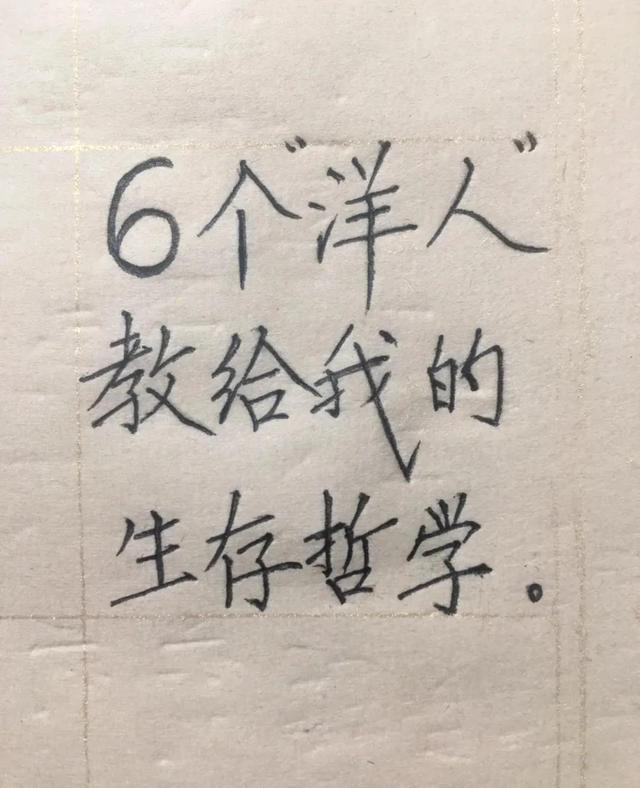 6个“洋人”
教给我的
生存哲学.